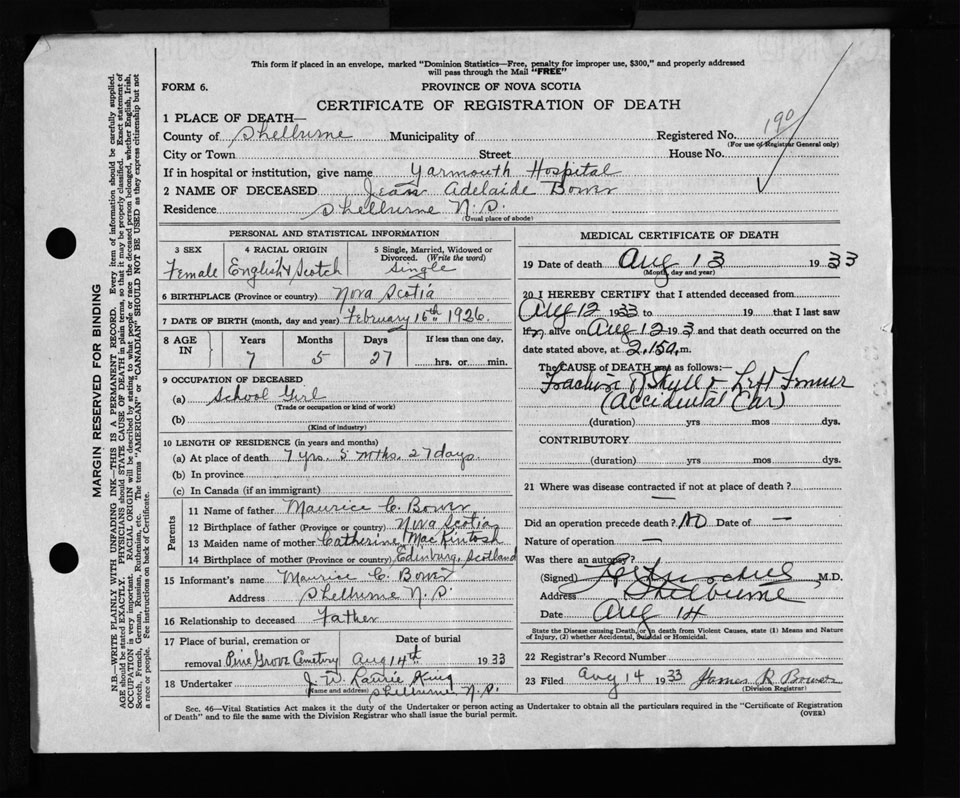 This form if placed in an envelope, marked "Dominion Statistics—Free, penalty for improper use, $300," and properly addressed
will pass through the Mail "FREE"
FORM 6. PROVINCE OF NOVA SCOTIA
CERTIFICATE OF REGISTRATION OF DEATH
1 PLACE OF DEATH—
County of Shelburne Municipality of Registered No. 190
(For use of Registrar General only)
City or Town Street House No.
If in hospital or institution, give name Yarmouth Hospital
2 NAME OF DECEASED Jean Adelaide Bower
Residence Shelburne N.S.
(Usual place of abode)
PERSONAL AND STATISTICAL INFORMATION
3 SEX 4 RACIAL ORIGIN 5 Single, Married, Widowed or
Divorced. (Write the word)
Female English & Scotch Single
6 BIRTHPLACE (Province or country) Nova Scotia
7 DATE OF BIRTH (month, day and year) February 16th 1926.
8 AGE IN Years Months Days If less than one day,
7 5 27 hrs. or min.
9 OCCUPATION OF DECEASED
(a) School Girl
(Trade or occupation or kind of work)
(b)
(Kind of industry)
10 LENGTH OF RESIDENCE (in years and months)
(a) At place of death 7 yrs. 5 mths. 27 days.
(b) In province
(c) In Canada (if an immigrant)
Parents
11 Name of father Maurice C. Bower
12 Birthplace of father (Province or country) Nova Scotia
13 Maiden name of mother Catherine MacKintosh
14 Birthplace of mother (Province or country) Edinburg, Scotland
15 Informant's name Maurice C. Bower
Address Shelburne N.S.
16 Relationship to deceased Father
17 Place of burial, cremation or Date of burial
removal Pine Grove Cemetery Aug 14th 1933
18 Undertaker J. W. Laurie King
(Name and address) Shelburne N.S.
MEDICAL CERTIFICATE OF DEATH
19 Date of death Aug 13 1933
(Month, day and year)
20 I HEREBY CERTIFY that I attended deceased from
Aug 12 1933 to 19 that I last saw
h alive on Aug 12 193 and that death occurred on
date stated above, at 2.15 a, m.
The CAUSE OF DEATH was as follows:—
Skull & Left Femur
(Accidental Car)
(duration) yrs mos dys.
CONTRIBUTORY
(duration) yrs mos dys.
21 Where was disease contracted if not at place of death? —
Did an operation precede death? No Date of —
Nature of operation —
Was there an autopsy?
(Signed) M.D.
Address Shelburne
Date Aug 14
State the Disease causing Death, or in death from Violent Causes, state (1) Means and Nature
of Injury, (2) whether Accidental, Suicidal or Homicidal.
22 Registrar's Record Number
23 Filed Aug 14 1933 James R Bower
(Division Registrar)
Sec. 46—Vital Statistics Act makes it the duty of the Undertaker or person acting as Undertaker to obtain all the particulars required in the "Certificate of Registration
of Death" and to file the same with the Division Registrar who shall issue the burial permit. (OVER)
MARGIN RESERVED FOR BINDING
N.B.—WRITE PLAINLY WITH UNFADING INK—THIS IS A PERMANENT RECORD. Every item of information should be carefully supplied.
AGE should be stated EXACTLY. PHYSICIANS should STATE CAUSE OF DEATH in plain terms, so that it may be properly classified. Exact statement of
OCCUPATION is very important. RACIAL ORIGIN will be described by stating to what people or race the deceased person belonged, whether English, Irish,
Scotch, French, German, Russian, Ruthenian, etc. The terms "AMERICAN" or "CANADIAN" SHOULD NOT BE USED as they express citizenship but not
a race or people. See instructions on back of Certificate.